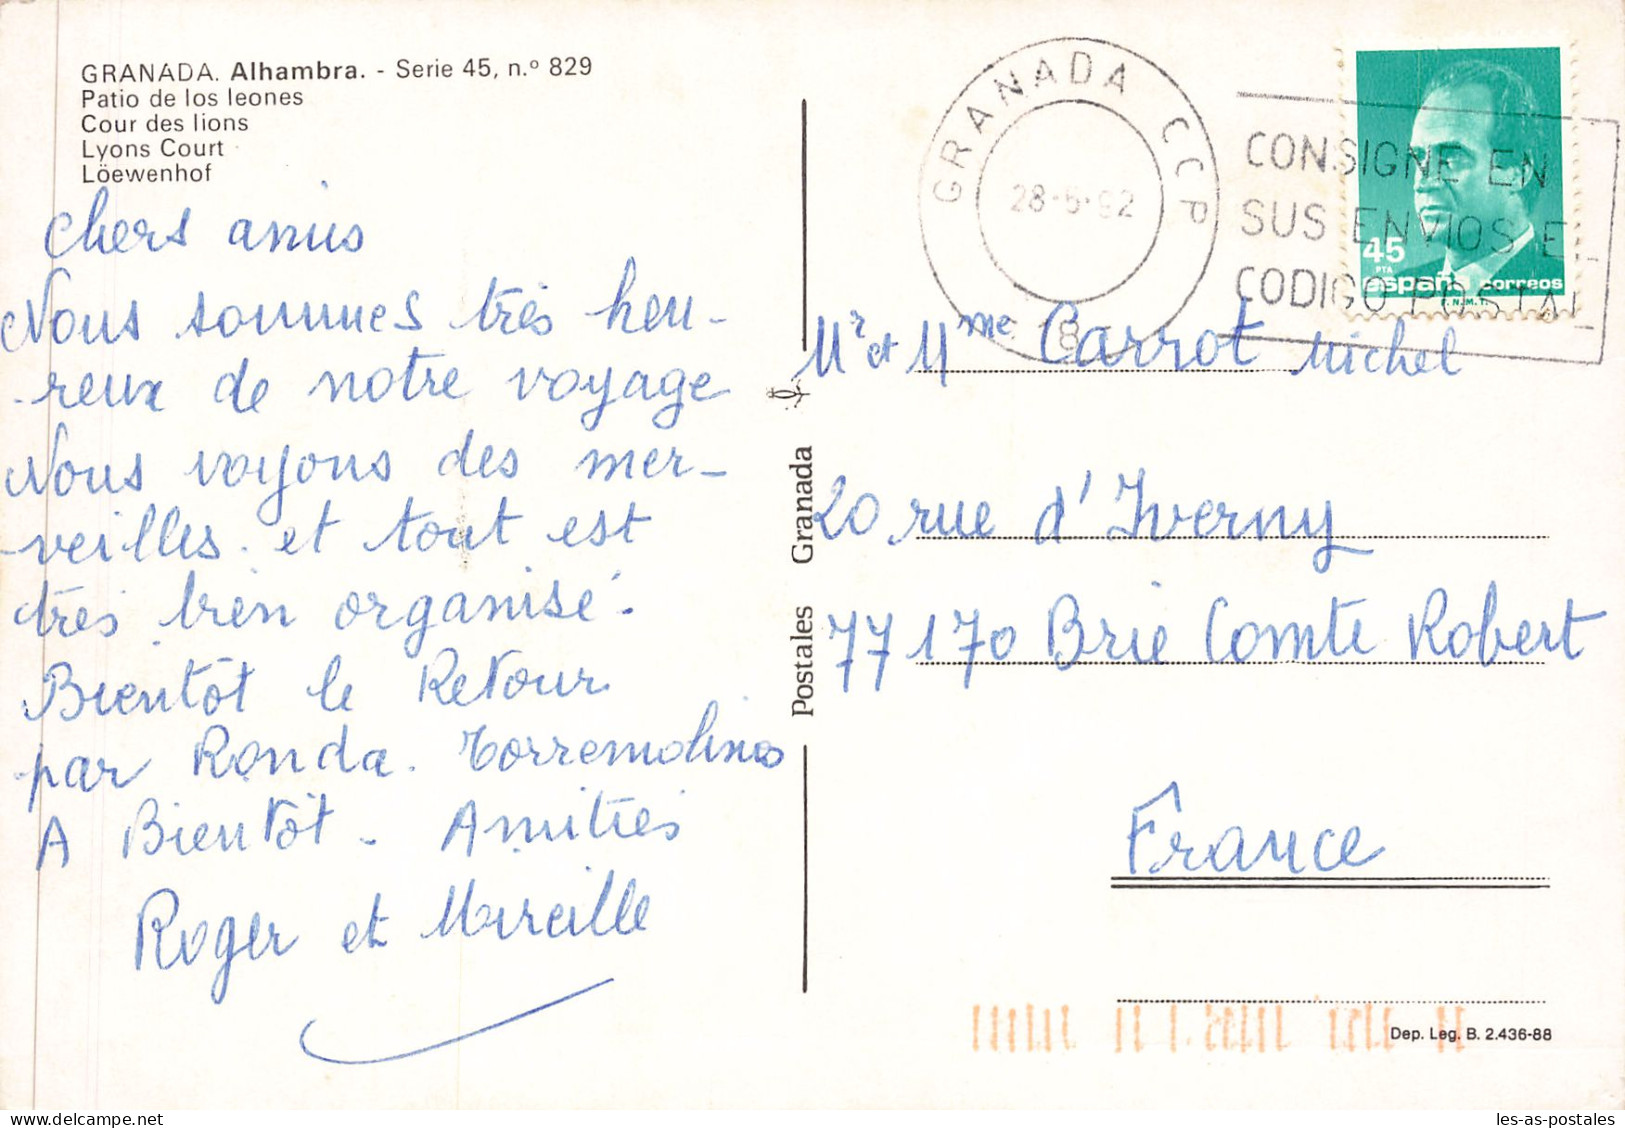 GRANADA. Alhambra. - Serie 45, n.º 829
Patio de los leones
Cour des lions
Lyons Court
Löewenhof
chers amis
Nous sommes très heu-
-reux de notre voyage
Nous voyons des mer-
-veilles. et tout est
très bien organisé.
Bientôt le Retour
par Ronda. Torremolinos
A Bientôt - Amitiés
Roger et Mireille
Postales Granada
GRANADA CCP
28-5-92
CONSIGNE EN
SUS ENVIOS E
CODIGO POSTAL
45
PTA
españa correos
F.N.M.T.
Mr et Mme Carrot Michel
20 rue d'Iverny
77170 Brie Comte Robert
France
Dep. Leg. B. 2.436-88
les-as-postales